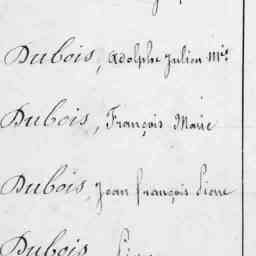 Dubois, Adolphe Julien Mie
Dubois, François Marie
Dubois, Jean François Pierre
Dubois